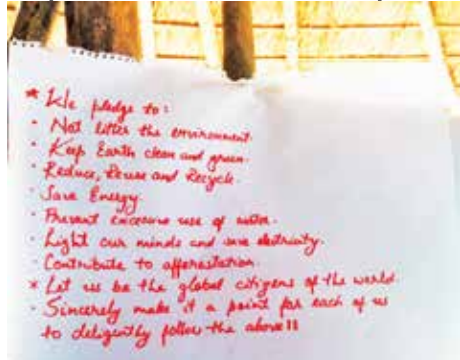 * We pledge to:
- Not litter the environment.
- Keep Earth clean and green.
- Reduce, Reuse and Recycle.
- Save Energy.
- Prevent excessive use of water.
- Light our minds and save electricity.
- Contribute to afforestation.
* Let us be the global citizens of the world.
- Sincerely make it a point for each of us
to deligently follow the above!!